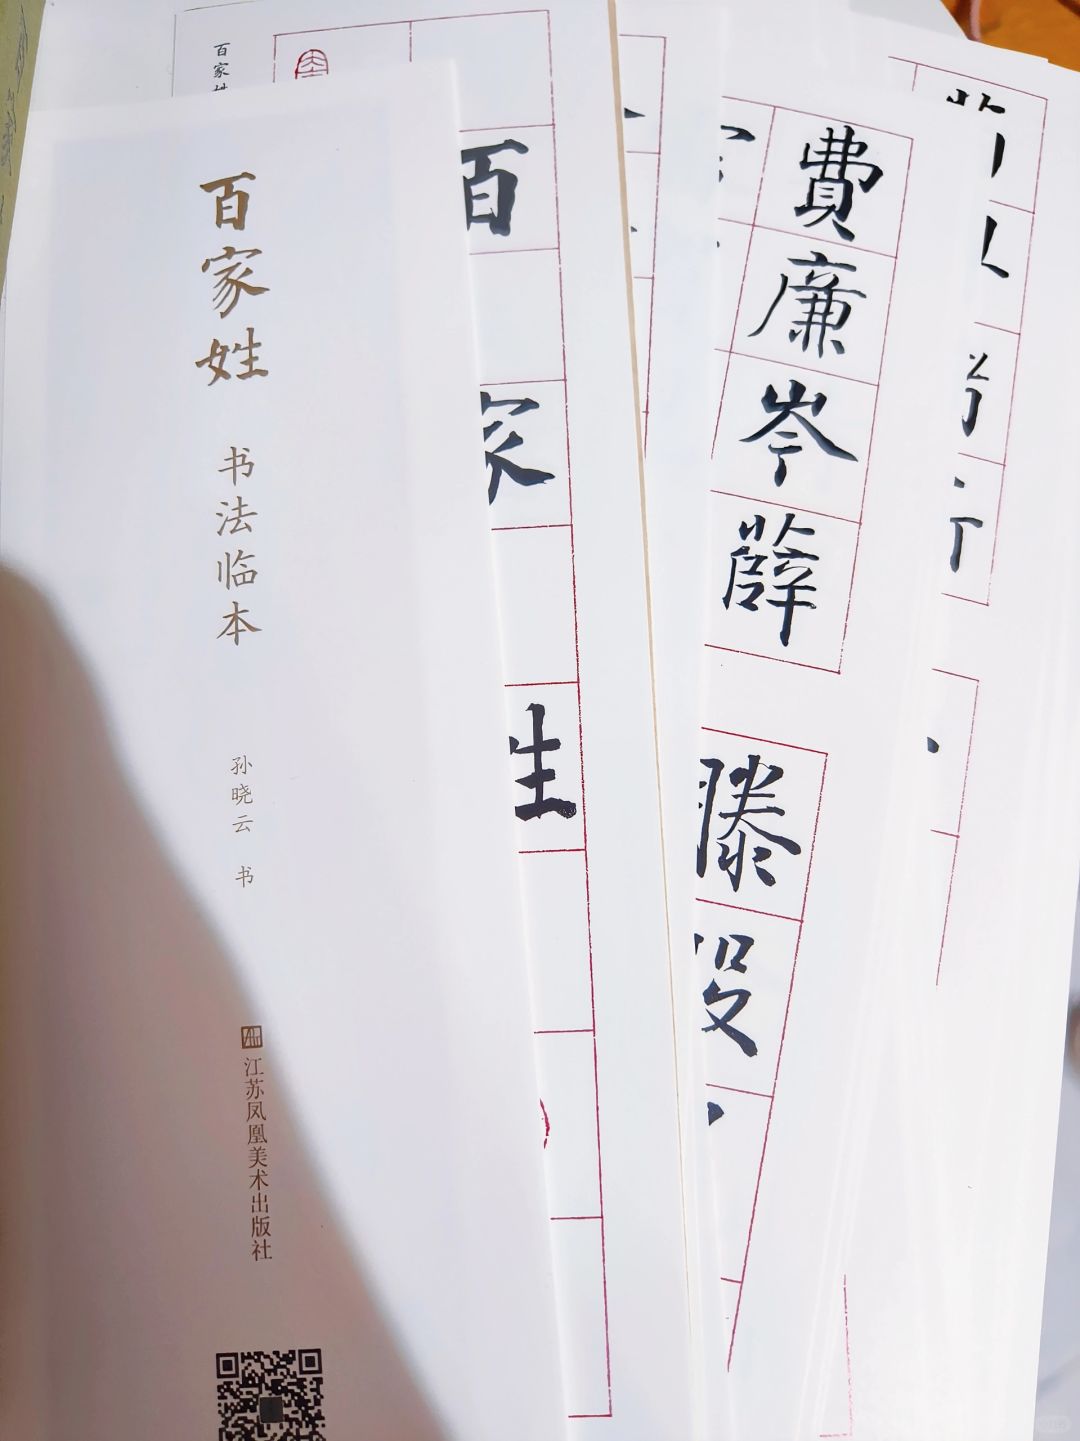 百家姓
书法临本
孙晓云 书
江苏凤凰美术出版社
百家姓
百
家
姓
費
廉
岑
薛
滕
殷